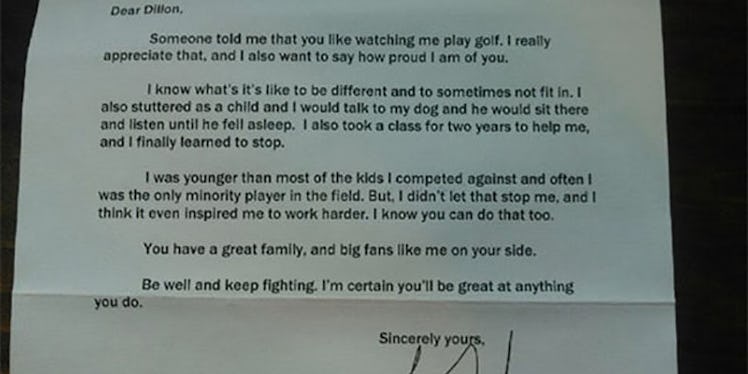 Dear Dillon,
Someone told me that you like watching me play golf. I really
appreciate that, and I also want to say how proud I am of you.
I know what's it's like to be different and to sometimes not fit in. I
also stuttered as a child and I would talk to my dog and he would sit there
and listen until he fell asleep. I also took a class for two years to help me,
and I finally learned to stop.
I was younger than most of the kids I competed against and often I
was the only minority player in the field. But, I didn't let that stop me, and I
think it even inspired me to work harder. I know you can do that too.
You have a great family, and big fans like me on your side.
Be well and keep fighting. I'm certain you'll be great at anything
you do.
Sincerely yours,